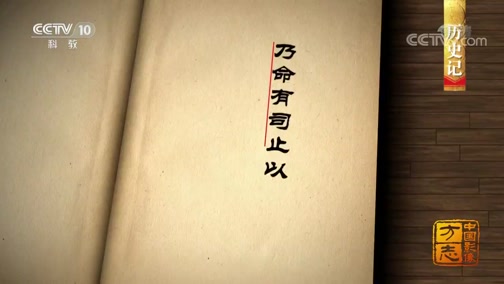 CCTV 10
科教
CCTV.com
历史记
乃命有司止以
中国影像
方志